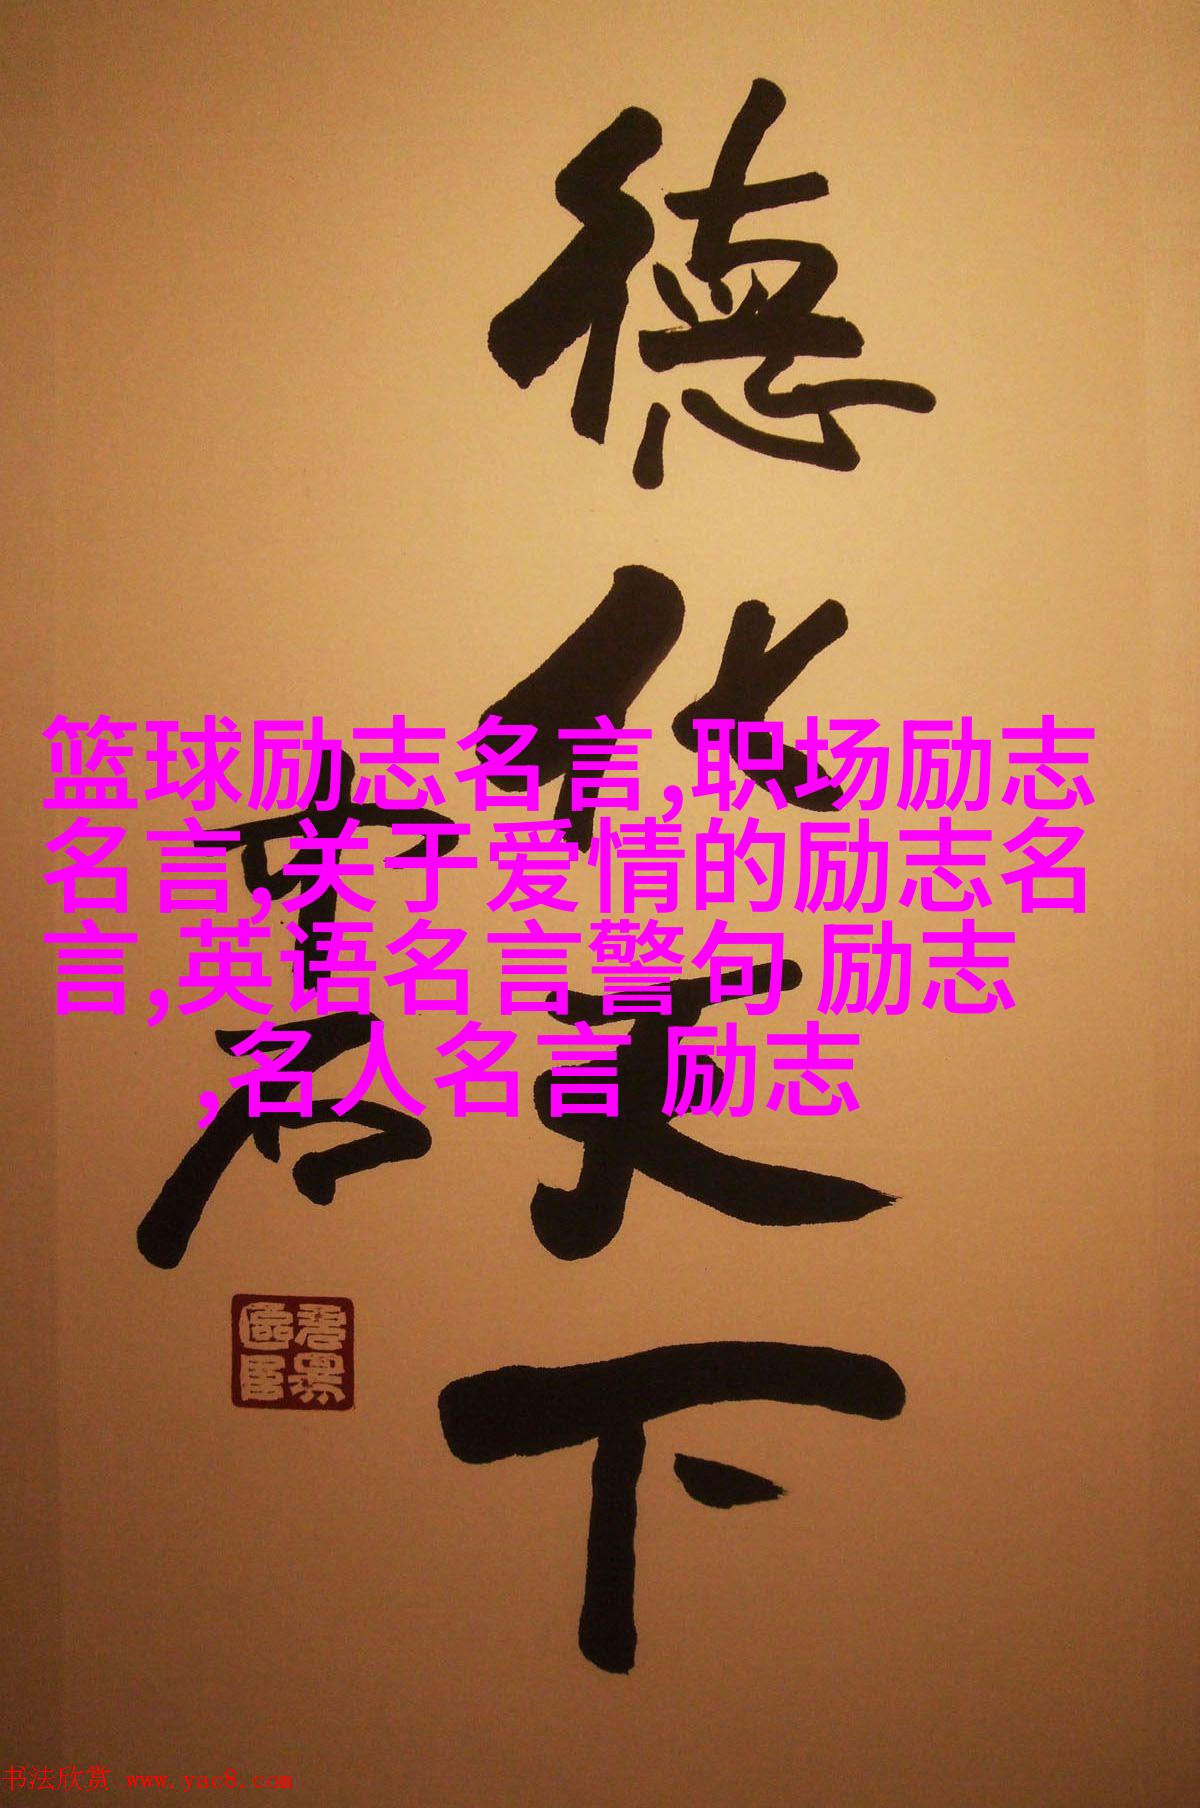 德化天下
篮球励志名言,职场励志
名言,关于爱情的励志名
言,英语名言警句 励志
,名人名言 励志
书法欣赏 www.yac8.com